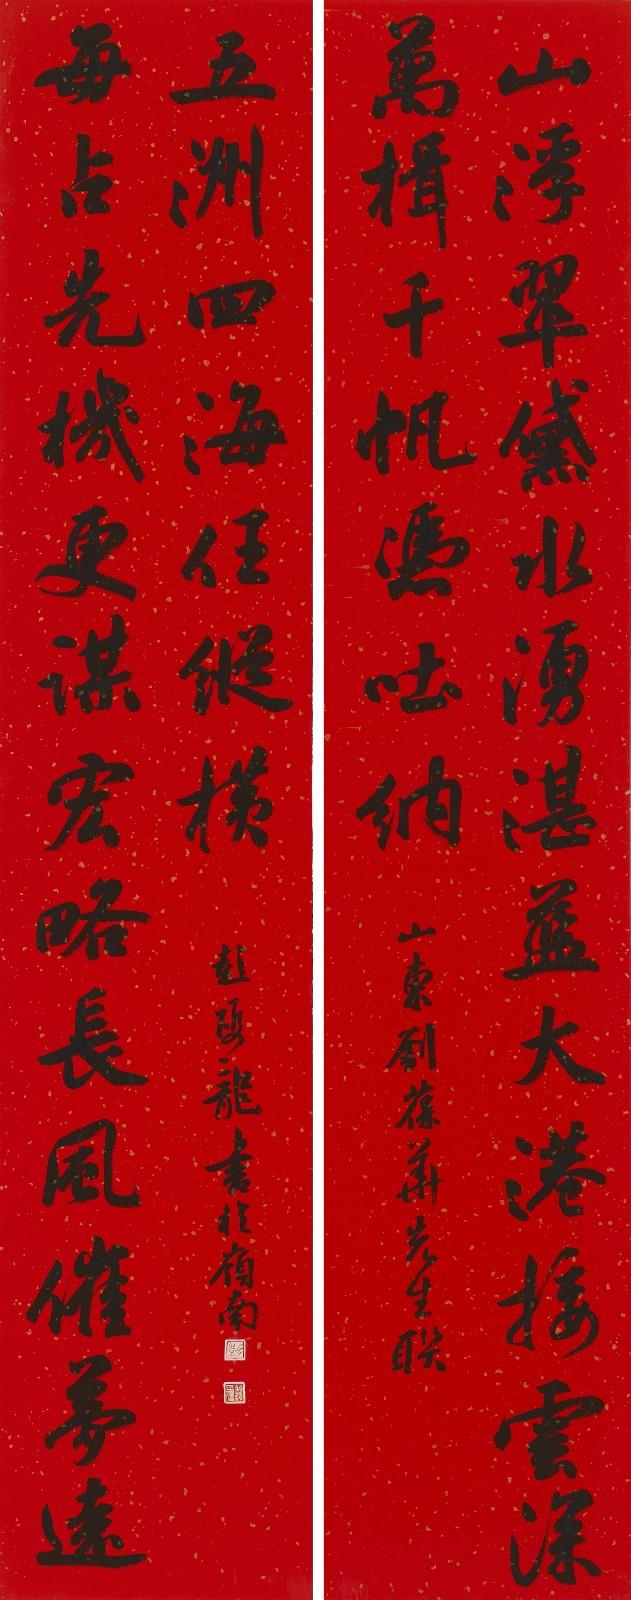 山浮翠黛水湧湛藍大港接雲深
萬楫千帆憑吐納
山東劉葆華先生聯
每占先機更謀宏略長風催夢遠
五洲四海任縱橫
彭 龍書於嶺南